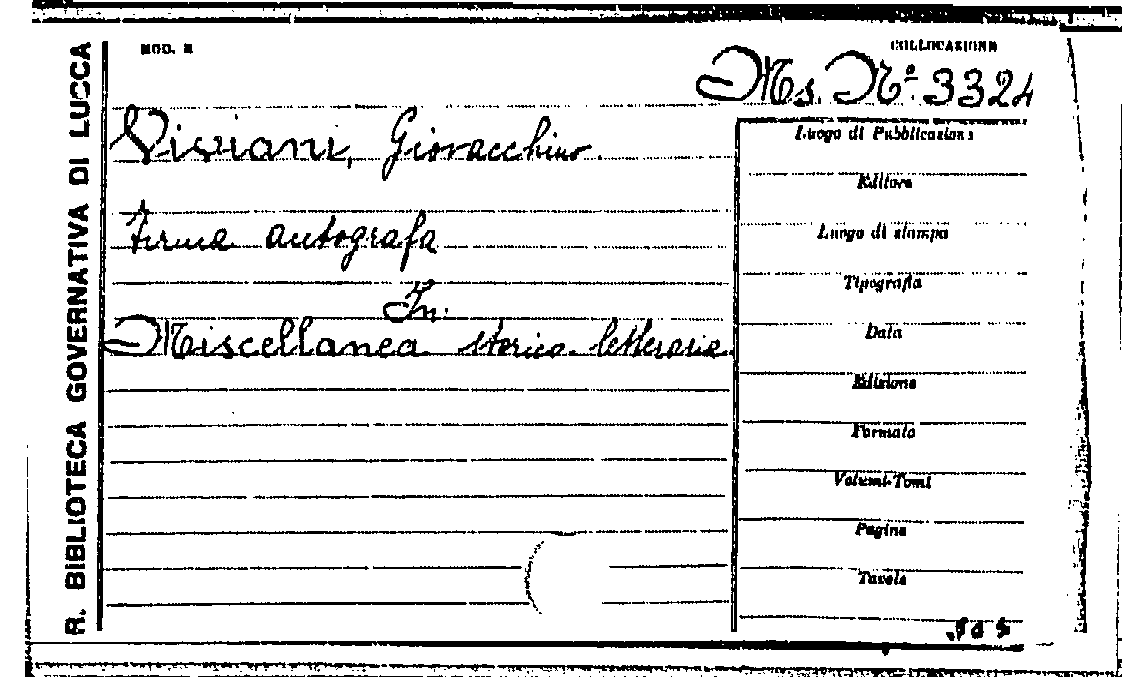 R. BIBLIOTECA GOVERNATIVA DI LUCCA
MOD. E
COLLOCAZIONE
Ms. Nº 3324
Viviani, Giovacchino
firma autografa
In:
Miscellanea storico-letteraria
Luogo di Pubblicazione
Editore
Luogo di stampa
Tipografia
Data
Edizione
Formato
Volumi-Tomi
Pagine
Tavole